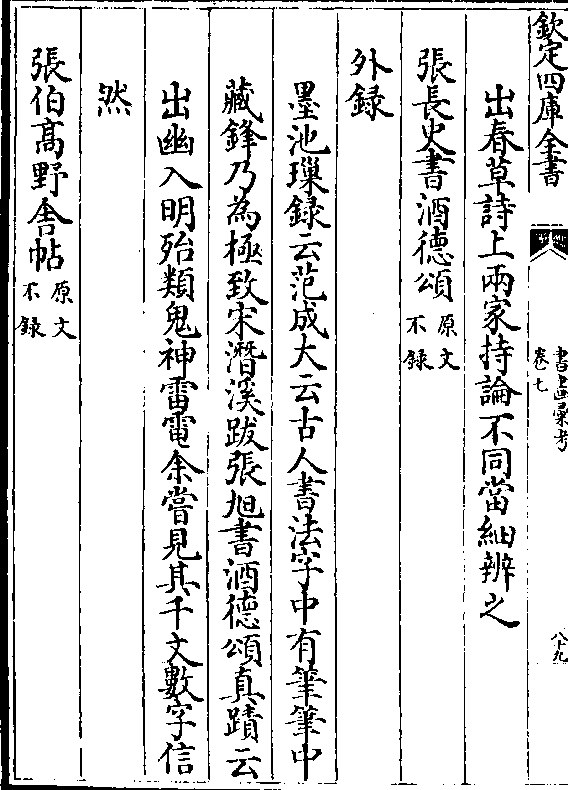 欽定四庫全書
書畫彙考
卷七
八十九
出春草詩上兩家持論不同當細辨之
張長史書酒德頌原文不録
外録
墨池璅録云范成大云古人書法字中有筆筆中
藏鋒乃為極致宋潛溪跋張旭書酒德頌真蹟云
出幽入明殆類鬼神雷電余嘗見其千文數字信
然
張伯高野舍帖原文不録